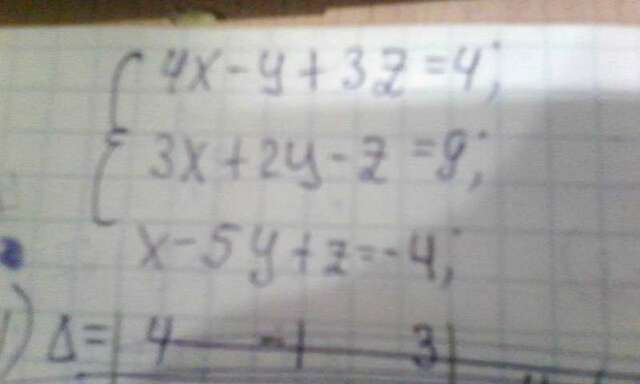 4x-y+3z=4;
3x+2y-z=9;
x-5y+z=-4;
1) Δ=|4 -1 3|